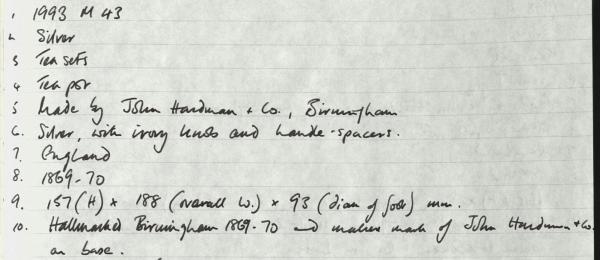 1 1993 M 43
2 Silver
3 Tea sets
4 Tea pot
5 Made by John Hardman + Co., Birmingham
6. Silver, with ivory knob and handle-spacers.
7. England
8. 1869-70
9. 157 (H) x 188 (overall W.) x 93 (diam of foot) mm.
10. Hallmarked Birmingham 1869-70 and makers mark of John Hardman + Co.
on base.